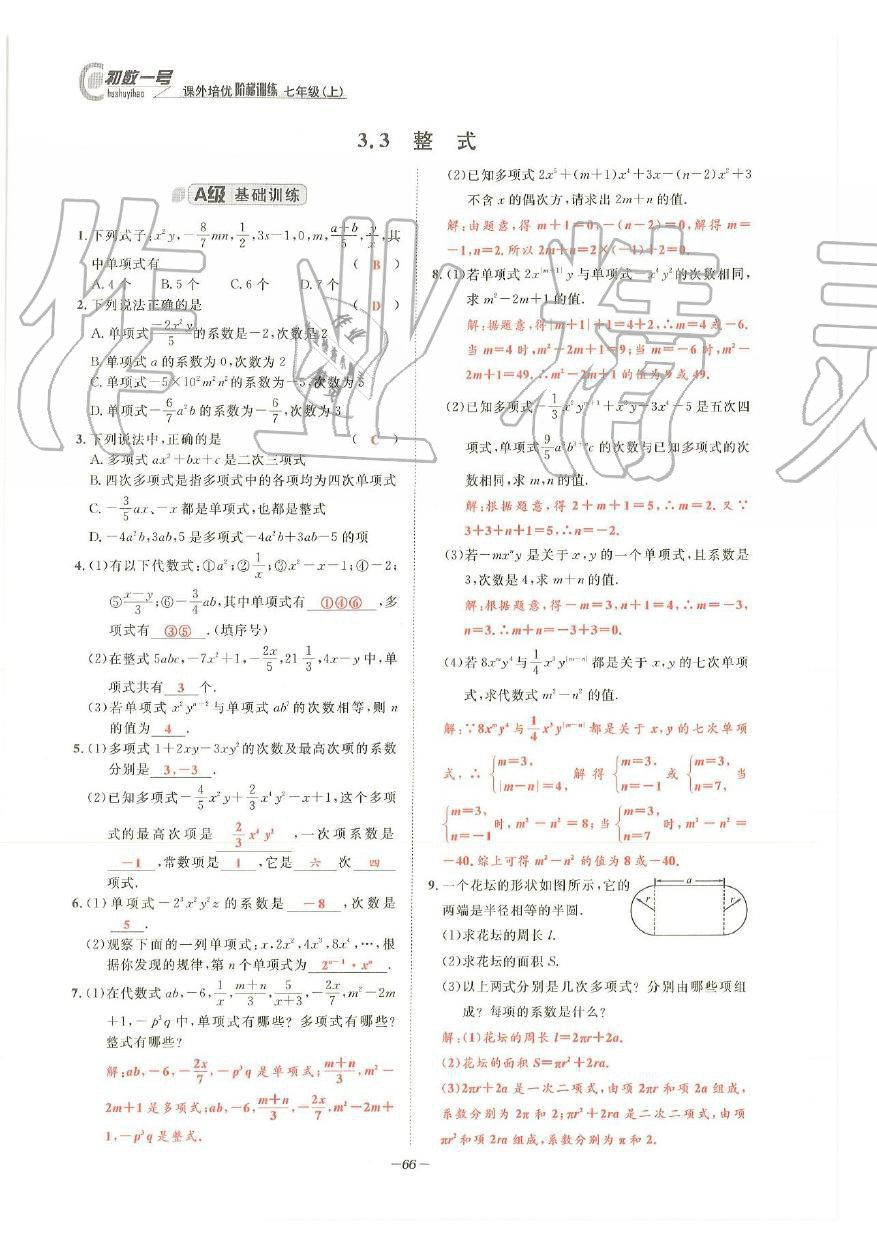 初数一号
chushuyihao
课外培优阶梯训练 七年级(上)
3.3 整 式
A级 基础训练
1.下列式子:x²y,-8/7mn,1/2,3s-1,0,m,(a+b)/5,y/x,其
中单项式有 ( B )
A.4个 B.5个 C.6个 D.7个
2.下列说法正确的是 ( D )
A.单项式-2x²y/5的系数是-2,次数是2
B.单项式a的系数为0,次数为2
C.单项式-5×10²m²n²的系数为-5,次数为5
D.单项式-6/7a²b的系数为-6/7,次数为3
3.下列说法中,正确的是 ( C )
A.多项式ax²+bx+c是二次三项式
B.四次多项式是指多项式中的各项均为四次单项式
C.-3/5ax、-x都是单项式,也都是整式
D.-4a²b,3ab,5是多项式-4a²b+3ab-5的项
4.(1)有以下代数式:①a²;②1/x;③x²-x-1;④-2;
⑤(x-y)/3;⑥-3/4ab,其中单项式有 ①④⑥ ,多
项式有 ③⑤ .(填序号)
(2)在整式5abc,-7x²+1,-2x/5,21 1/3,4x-y中,单
项式共有 3 个.
(3)若单项式x²yⁿ⁻²与单项式ab⁷的次数相等,则n
的值为 4 .
5.(1)多项式1+2xy-3xy²的次数及最高次项的系数
分别是 3,-3 .
(2)已知多项式-4/5x²y+2/3x⁴y²-x+1,这个多项
式的最高次项是 2/3x⁴y² ,一次项系数是
-1 ,常数项是 1 ,它是 六 次 四
项式.
6.(1)单项式-2³x²y²z的系数是 -8 ,次数是
5 .
(2)观察下面的一列单项式:x,2x²,4x³,8x⁴,…,根
据你发现的规律,第n个单项式为 2ⁿ⁻¹·xⁿ .
7.(1)在代数式ab,-6,1/x,(m+n)/3,5/(x+3),-2x/7,m²-2m
+1,-p³q中,单项式有哪些?多项式有哪些?
整式有哪些?
解:ab,-6,-2x/7,-p³q是单项式;(m+n)/3,m²-
2m+1是多项式;ab,-6,(m+n)/3,-2x/7,m²-2m+
1,-p³q是整式.
(2)已知多项式2x⁵+(m+1)x⁴+3x-(n-2)x²+3
不含x的偶次方,请求出2m+n的值.
解:由题意,得m+1=0,-(n-2)=0,解得m=
-1,n=2.所以2m+n=2×(-1)+2=0.
8.(1)若单项式2x^|m+1|y与单项式-x⁴y²的次数相同,
求m²-2m+1的值.
解:据题意,得|m+1|+1=4+2,∴m=4或-6.
当m=4时,m²-2m+1=9;当m=-6时,m²-
2m+1=49.∴m²-2m+1的值为9或49.
(2)已知多项式-1/3x²yᵐ⁺¹+x²y-3x⁴-5是五次四
项式,单项式9/5a³b³⁺ⁿc的次数与已知多项式的次
数相同,求m,n的值.
解:根据题意,得2+m+1=5,∴m=2.又∵
3+3+n+1=5,∴n=-2.
(3)若-mxⁿy是关于x,y的一个单项式,且系数是
3,次数是4,求m+n的值.
解:根据题意,得-m=3,n+1=4,∴m=-3,
n=3.∴m+n=-3+3=0.
(4)若8xᵐy⁴与1/4x³y^|m-n|都是关于x,y的七次单项
式,求代数式m²-n²的值.
解:∵8xᵐy⁴与1/4x³y^|m-n|都是关于x,y的七次单项
式,∴{m=3,|m-n|=4,解得{m=3,n=-1或{m=3,n=7,当
{m=3,n=-1时,m²-n²=8;当{m=3,n=7时,m²-n²=
-40.综上可得m²-n²的值为8或-40.
9.一个花坛的形状如图所示,它的
两端是半径相等的半圆.
a
r r
(1)求花坛的周长l.
(2)求花坛的面积S.
(3)以上两式分别是几次多项式?分别由哪些项组
成?每项的系数是什么?
解:(1)花坛的周长l=2πr+2a.
(2)花坛的面积S=πr²+2ra.
(3)2πr+2a是一次二项式,由项2πr和项2a组成,
系数分别为2π和2;πr²+2ra是二次二项式,由项
πr²和项2ra组成,系数分别为π和2.
-66-
作业精灵